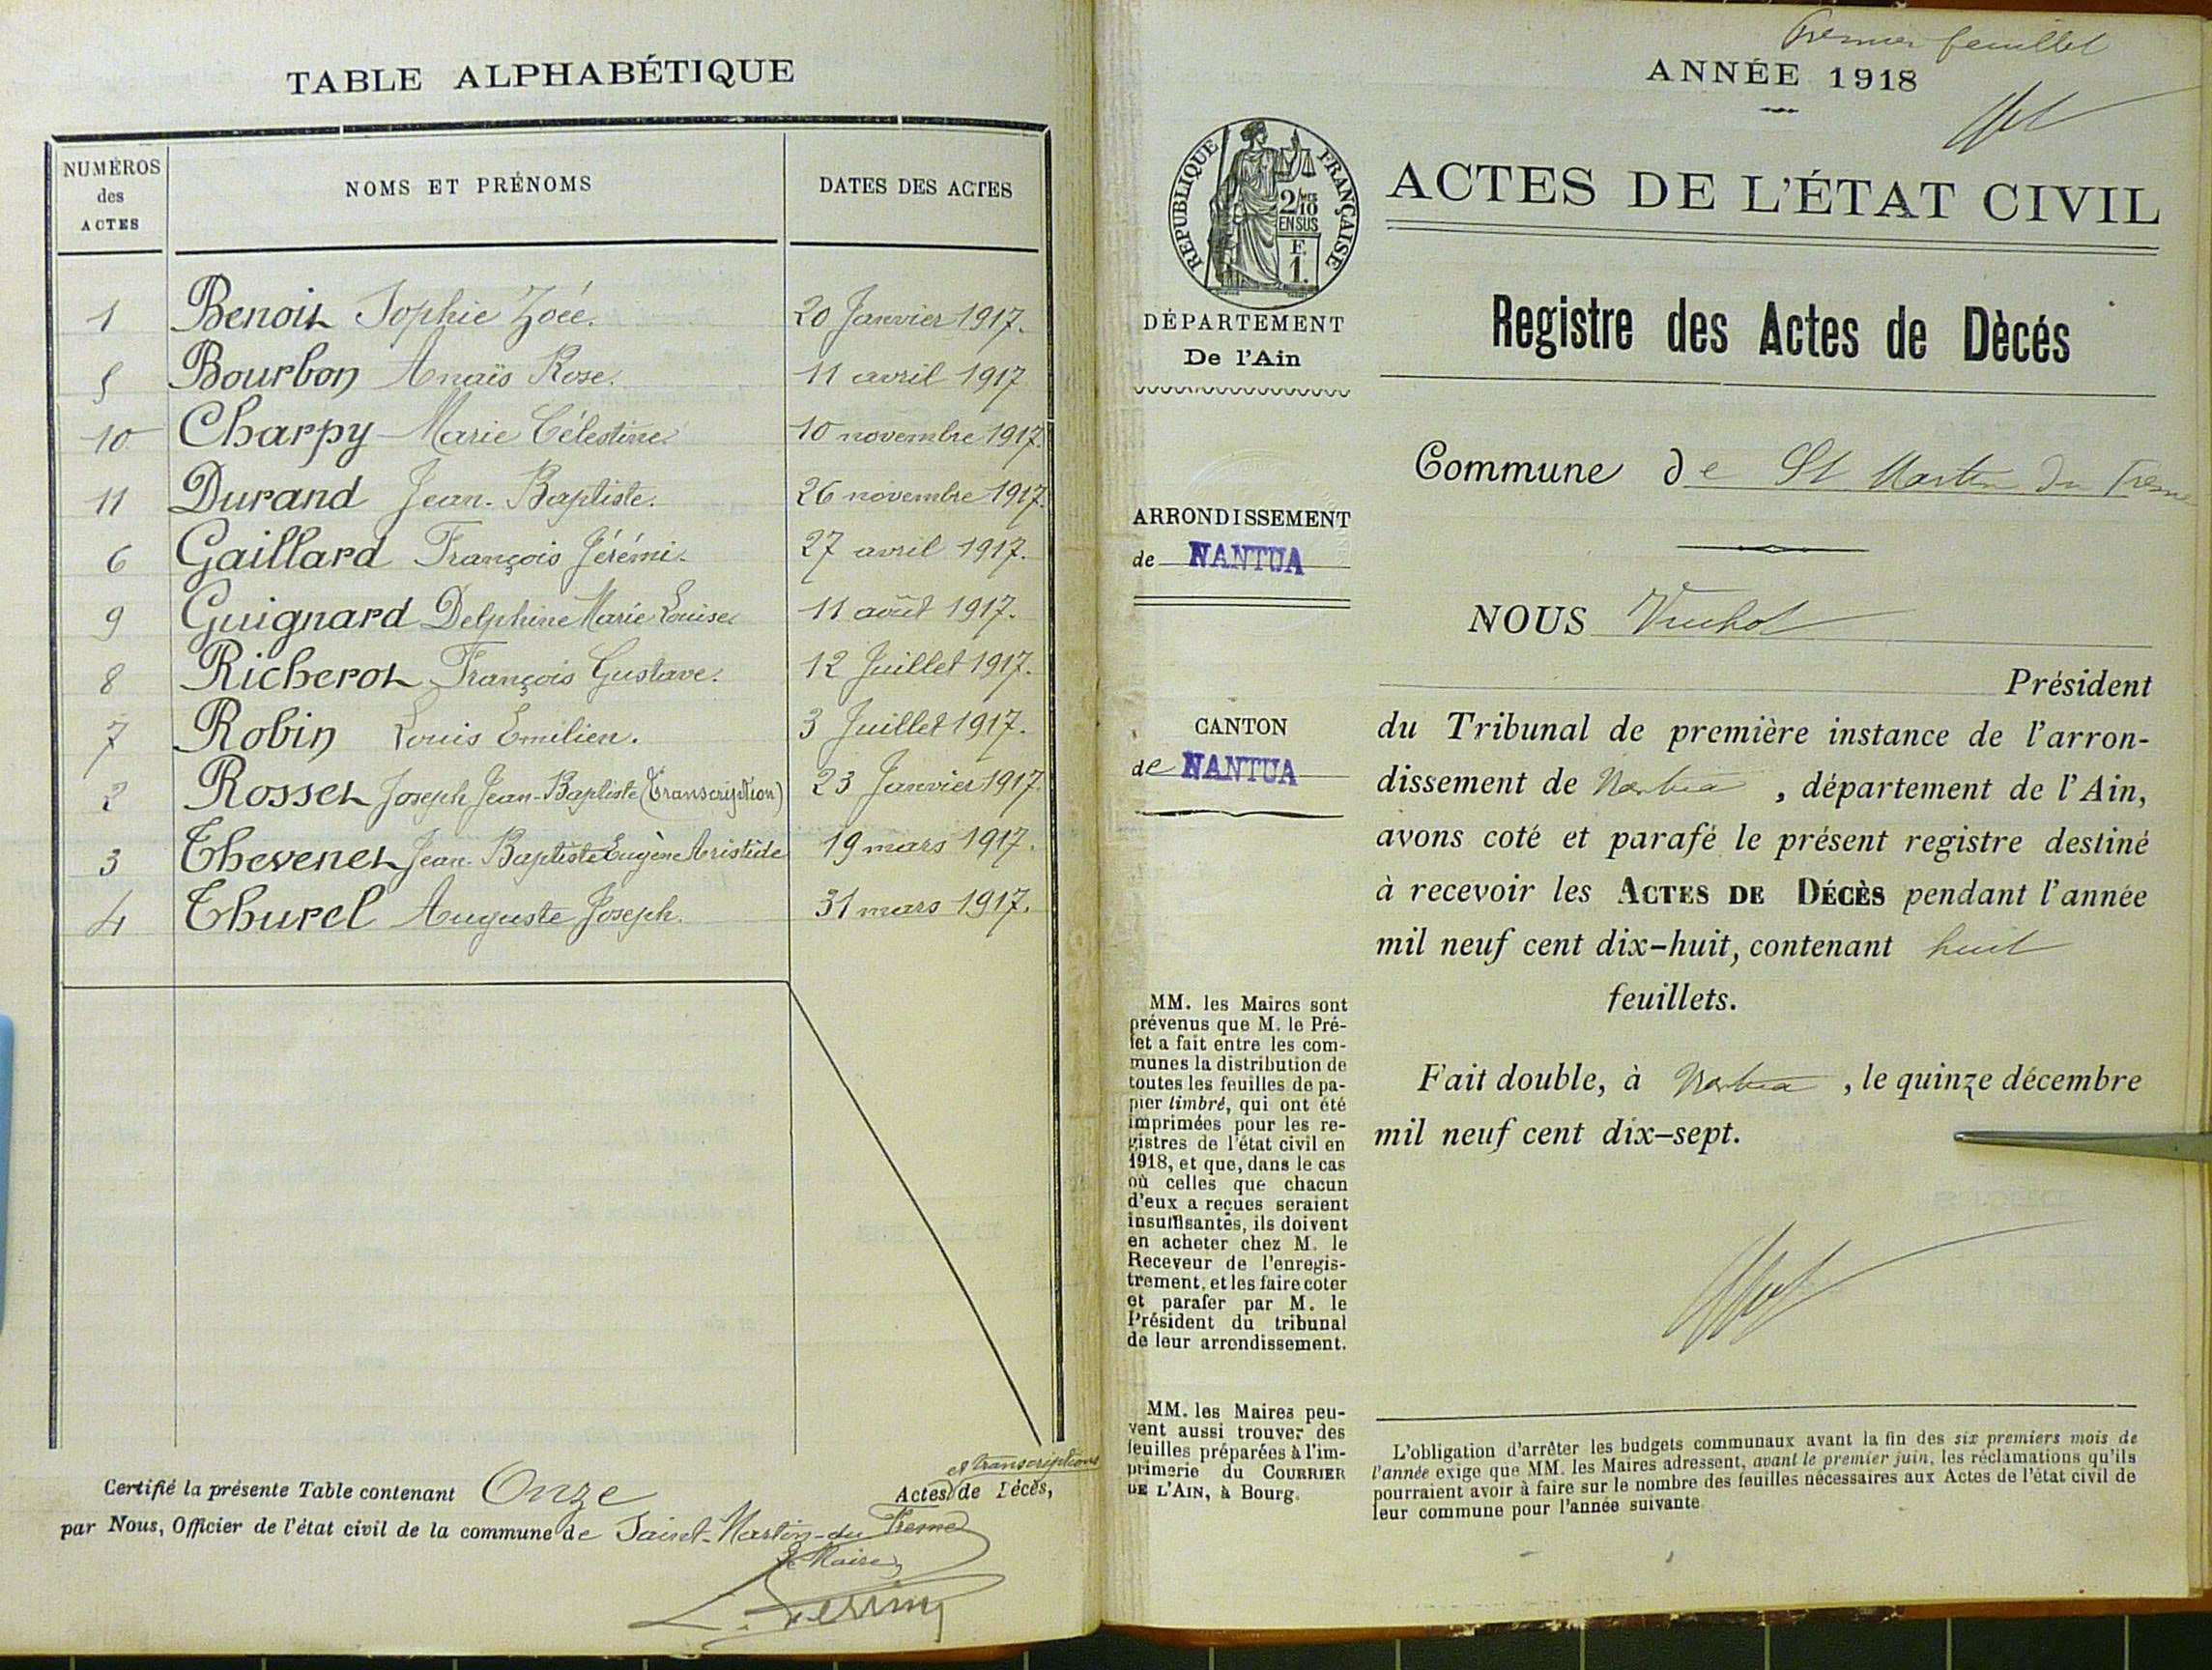 TABLE ALPHABÉTIQUE
NUMÉROS des ACTES NOMS ET PRÉNOMS DATES DES ACTES
1 Benoit Sophie Zoée. 20 Janvier 1917.
5 Bourbon Anaïs Rose. 11 avril 1917
10 Charpy Marie Célestine 10 novembre 1917.
11 Durand Jean-Baptiste. 26 novembre 1917.
6 Gaillard François Jérémi. 27 avril 1917.
9 Guignard Delphine Marie Louise 11 août 1917.
8 Richerot François Gustave. 12 Juillet 1917.
7 Robin Louis Emilien. 3 Juillet 1917.
2 Rosset Joseph Jean-Baptiste (Transcription) 23 Janvier 1917.
3 Thevenet Jean-Baptiste Eugène Aristide 19 mars 1917.
4 Thurel Auguste Joseph. 31 mars 1917.
et transcriptions
Certifié la présente Table contenant Onze Actes de Décès,
par Nous, Officier de l'état civil de la commune de Saint-Martin-du Fresne
Le Maire
Premier feuillet
ANNÉE 1918
RÉPUBLIQUE FRANÇAISE
2/10
EN SUS
F.
1.
ACTES DE L'ÉTAT CIVIL
DÉPARTEMENT
De l'Ain
Registre des Actes de Dècés
Commune de St Martin du Fresne
ARRONDISSEMENT
de NANTUA
NOUS Vuchot
Président
CANTON
de NANTUA
du Tribunal de première instance de l'arron-
dissement de Nantua , département de l'Ain,
avons coté et parafé le présent registre destiné
à recevoir les ACTES DE DÉCÈS pendant l'année
mil neuf cent dix-huit, contenant huit
feuillets.
Fait double, à Nantua , le quinze décembre
mil neuf cent dix-sept.
MM. les Maires sont
prévenus que M. le Pré-
fet a fait entre les com-
munes la distribution de
toutes les feuilles de pa-
pier timbré, qui ont été
imprimées pour les re-
gistres de l'état civil en
1918, et que, dans le cas
où celles que chacun
d'eux a reçues seraient
insuffisantes, ils doivent
en acheter chez M. le
Receveur de l'enregis-
trement, et les faire coter
et parafer par M. le
Président du tribunal
de leur arrondissement.
MM. les Maires peu-
vent aussi trouver des
feuilles préparées à l'im-
primerie du COURRIER
DE L'AIN, à Bourg.
L'obligation d'arrêter les budgets communaux avant la fin des six premiers mois de
l'année exige que MM. les Maires adressent, avant le premier juin, les réclamations qu'ils
pourraient avoir à faire sur le nombre des feuilles nécessaires aux Actes de l'état civil de
leur commune pour l'année suivante